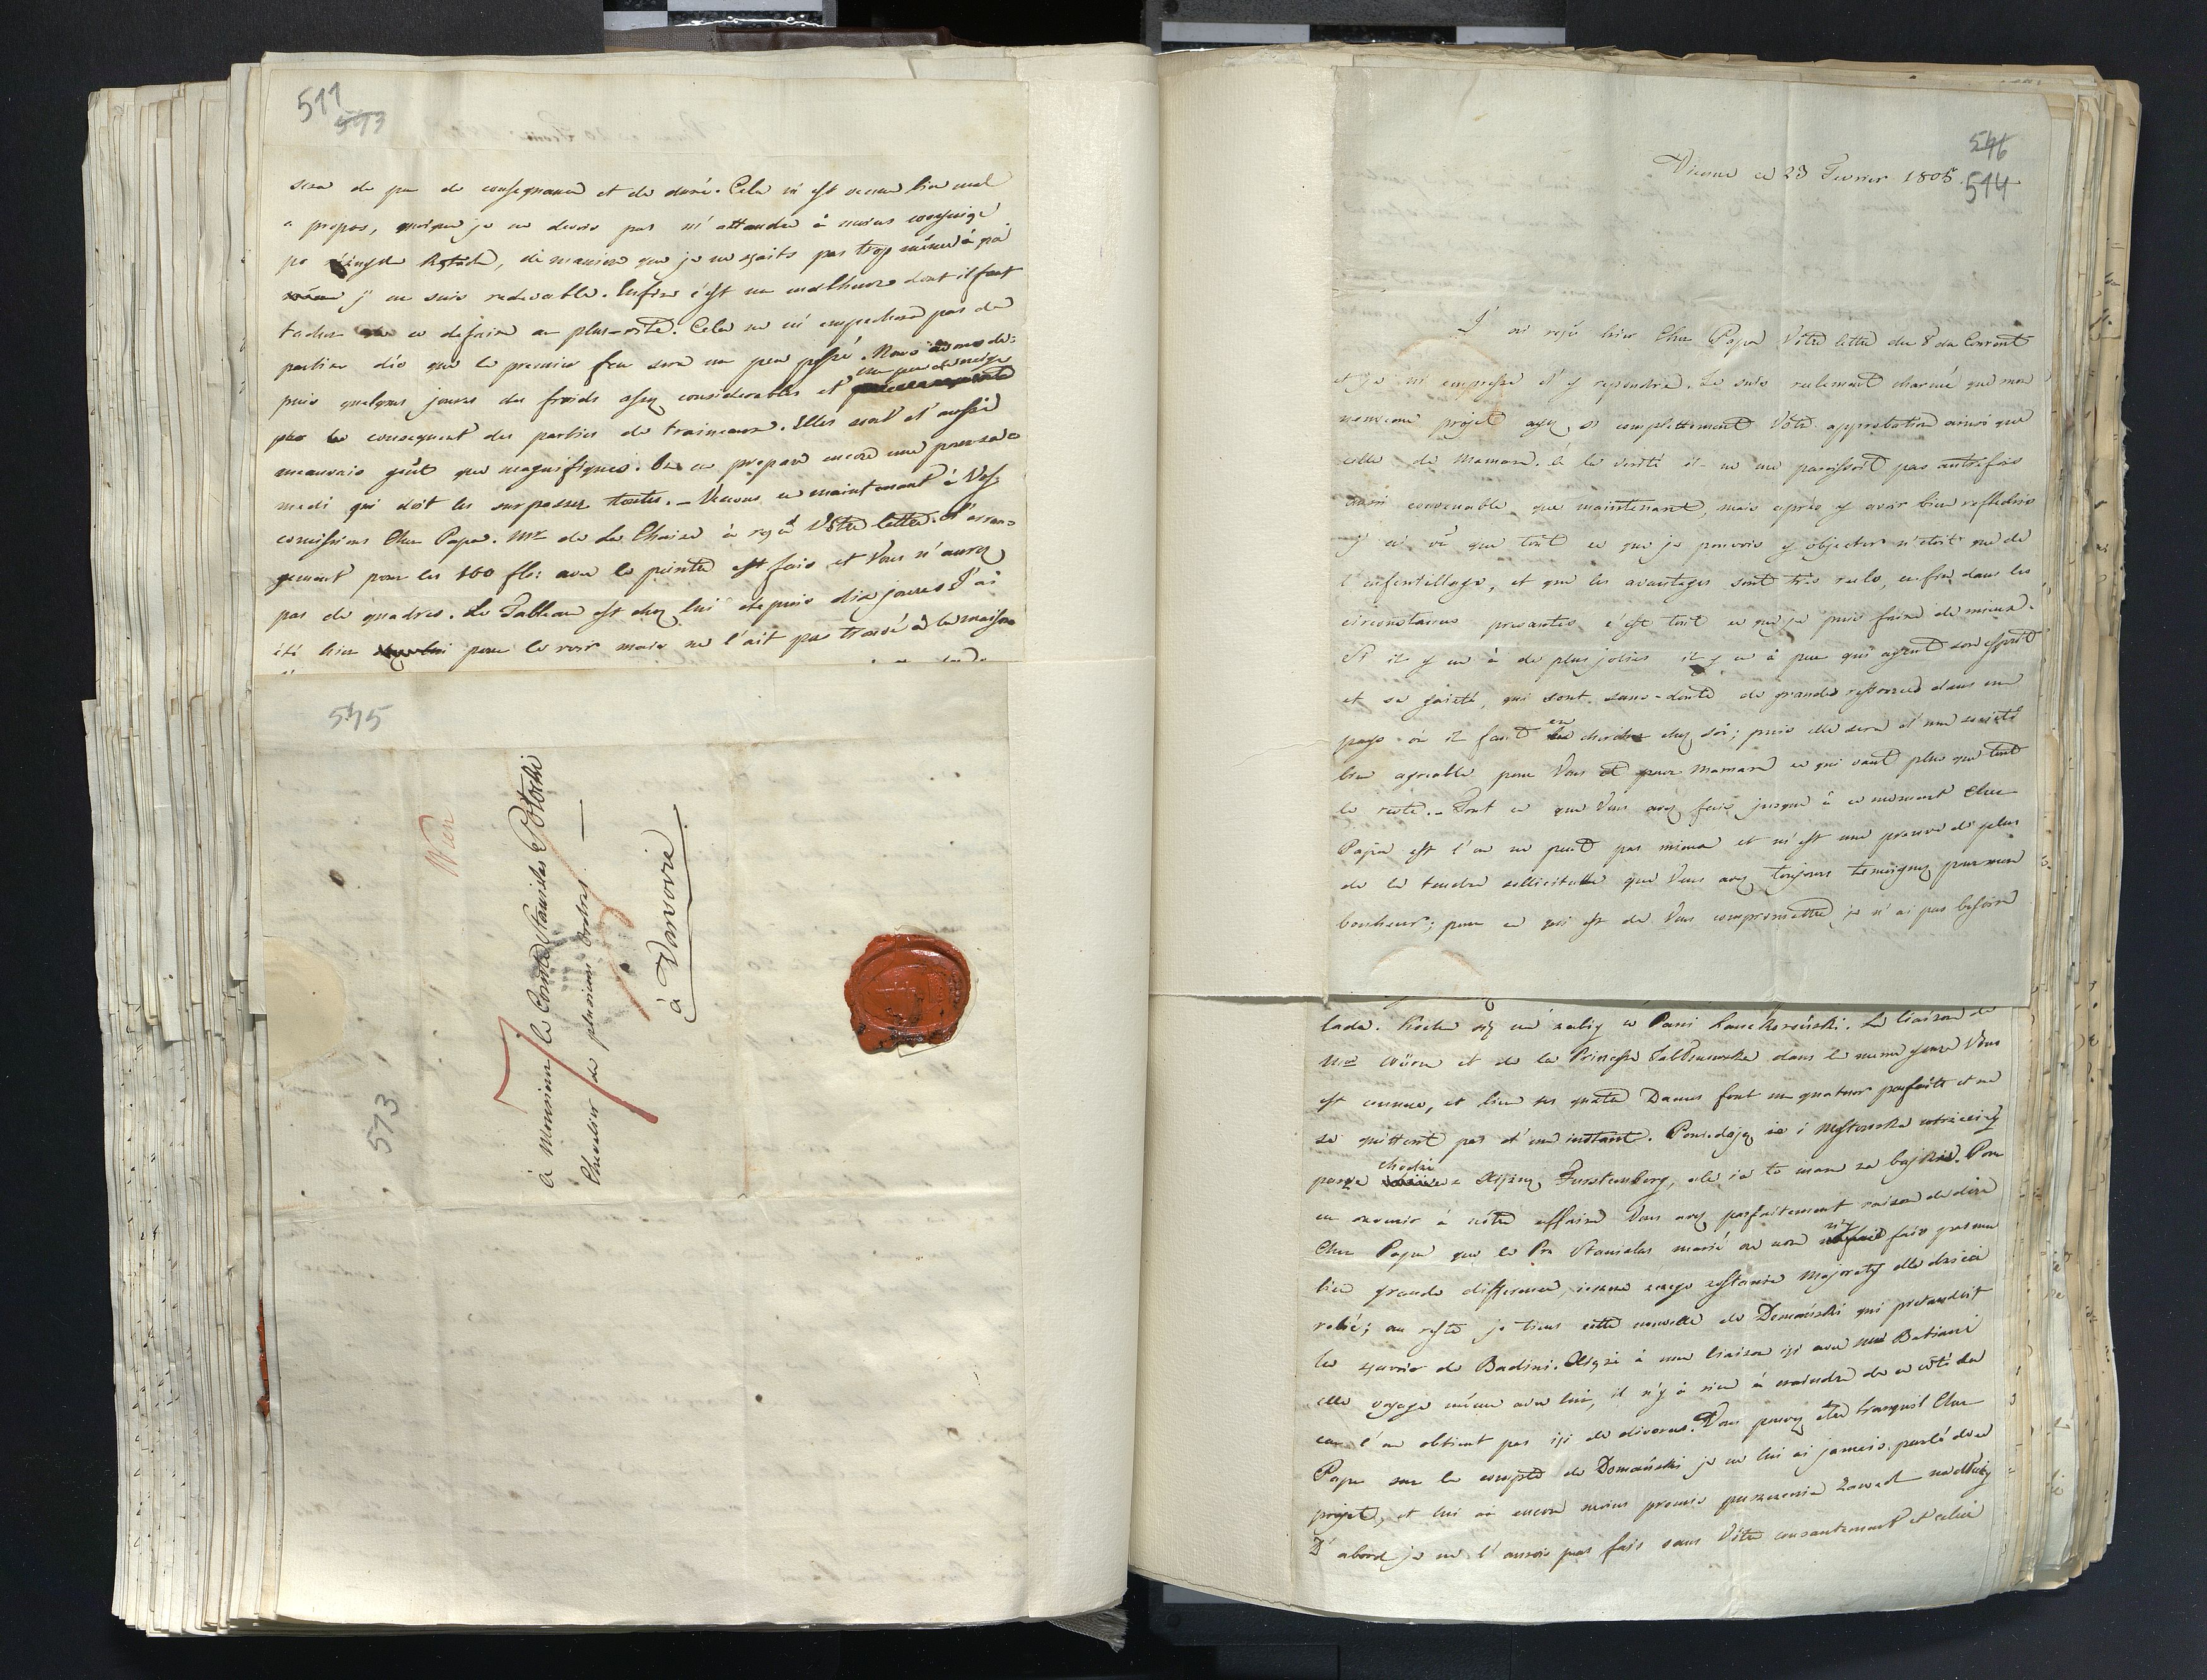 511
573
sera de peu de consequence et de duré. Cela m'est venu bien mal
a propos, quoique je ne devois pas m'attendre à moins
po, de maniere que je ne sçaits pas trop même à
j'en suis redevable. Enfin c'est un malheur dont il faut
tacher de ce defaire au plus-vite. Cela ne m'empechera pas de
partir dés que le premier feu sera un peu passé. Nous avons de-
puis quelques jours des froids assez considerables et un peu de neige
par consequent des parties de traineaux. Elles sont d'aussi
mauvais goût que magnifiques. On en prepare encore une pour sa-
medi qui doit les surpasser toutes. - Venons en maintenant à Vos
comissions Cher Papa. Mr de La Chaise à reçu Vôtre lettre. L'arran-
gement pour les 100 fl: avec le peintre est fais et Vous n'aurez
pas de quadres. Le Tableau est chez lui depuis dix jours J'ai
été hier pour le voir mais ne l'ait pas trouvé à la maison
575
573
Wien
à Monsieur le Comte Stanislas Potocki
Chevalier de plusieurs Ordres.
à Varsovie.
7
576
514
Vienne ce 23 Fevrier 1805.
J'ai reçû hier Cher Papa Vôtre lettre du 8 du Courant
et je m'empresse d'y repondre. Je suis reelement charmé que mon
nouveau projet aye si complettement Vôtre approbation ainsi que
celle de Maman. à la verité il ne me paroissoit pas autrefois
aussi convenable que maintenant, mais après y avoir bien reflechis
j'ai vû que tout ce que je pouvois y objecter n'etoit que de
l'enfentillage, et que les avantages sont très reels, enfin dans les
circonstances presantes c'est tout ce que je puis faire de mieux.
Et il y en à de plus jolies il y en à peu qui ayent son esprit
et sa gaieté, qui sont sans-doute de grandes ressources dans un
pays où il faut en chercher chez soi; puis elle sera d'une societé
bien agreable pour Vous et pour Maman ce qui vaut plus que tout
le reste. - Tout ce que Vous avez fais jusque à ce moment Cher
Papa est l'on ne peut pas mieux et m'est une preuve de plus
de la tendre sollicitude que Vous avez toujours temoignez pour mon
bonheur; pour ce qui est de Vous compromettre je n'ai pas besoin
lada. w Pani Lanckoroński. La liaison de
Mme et de la Princesse Jabłonowska dans le meme genre Vous
est connue, et bien ses quatre Dames font un quatuor parfaite et ne
se quittent pas d'un instant. Powiedają że i
chodzi Xiężną Furstemberg, ale ia to mam za bajki. Pour
en revenir à nôtre affaire Vous avez parfaitement raison de dire
Cher Papa que le Pce Stanislas marié ou non n'y fais pas une
bien grande difference, zostanie Majoraty dla dzieci
robić; au reste je tiens cette nouvelle de Domański qui pretendoit
la sçavoir de Badini. Xiąże à une liaison içi avec une Batiani
elle voyage même avec lui, il n'y à rien à craindre de ce coté la
car l'on obtient pas içi de divorces. Vous pouvez être tranquil Cher
Papa sur le compte de Domański je ne lui ai jamais parlé de ce
projet, et lui ai encore moins promis
D'abord je ne l'aurois pas fais sans Vôtre consantement et celui